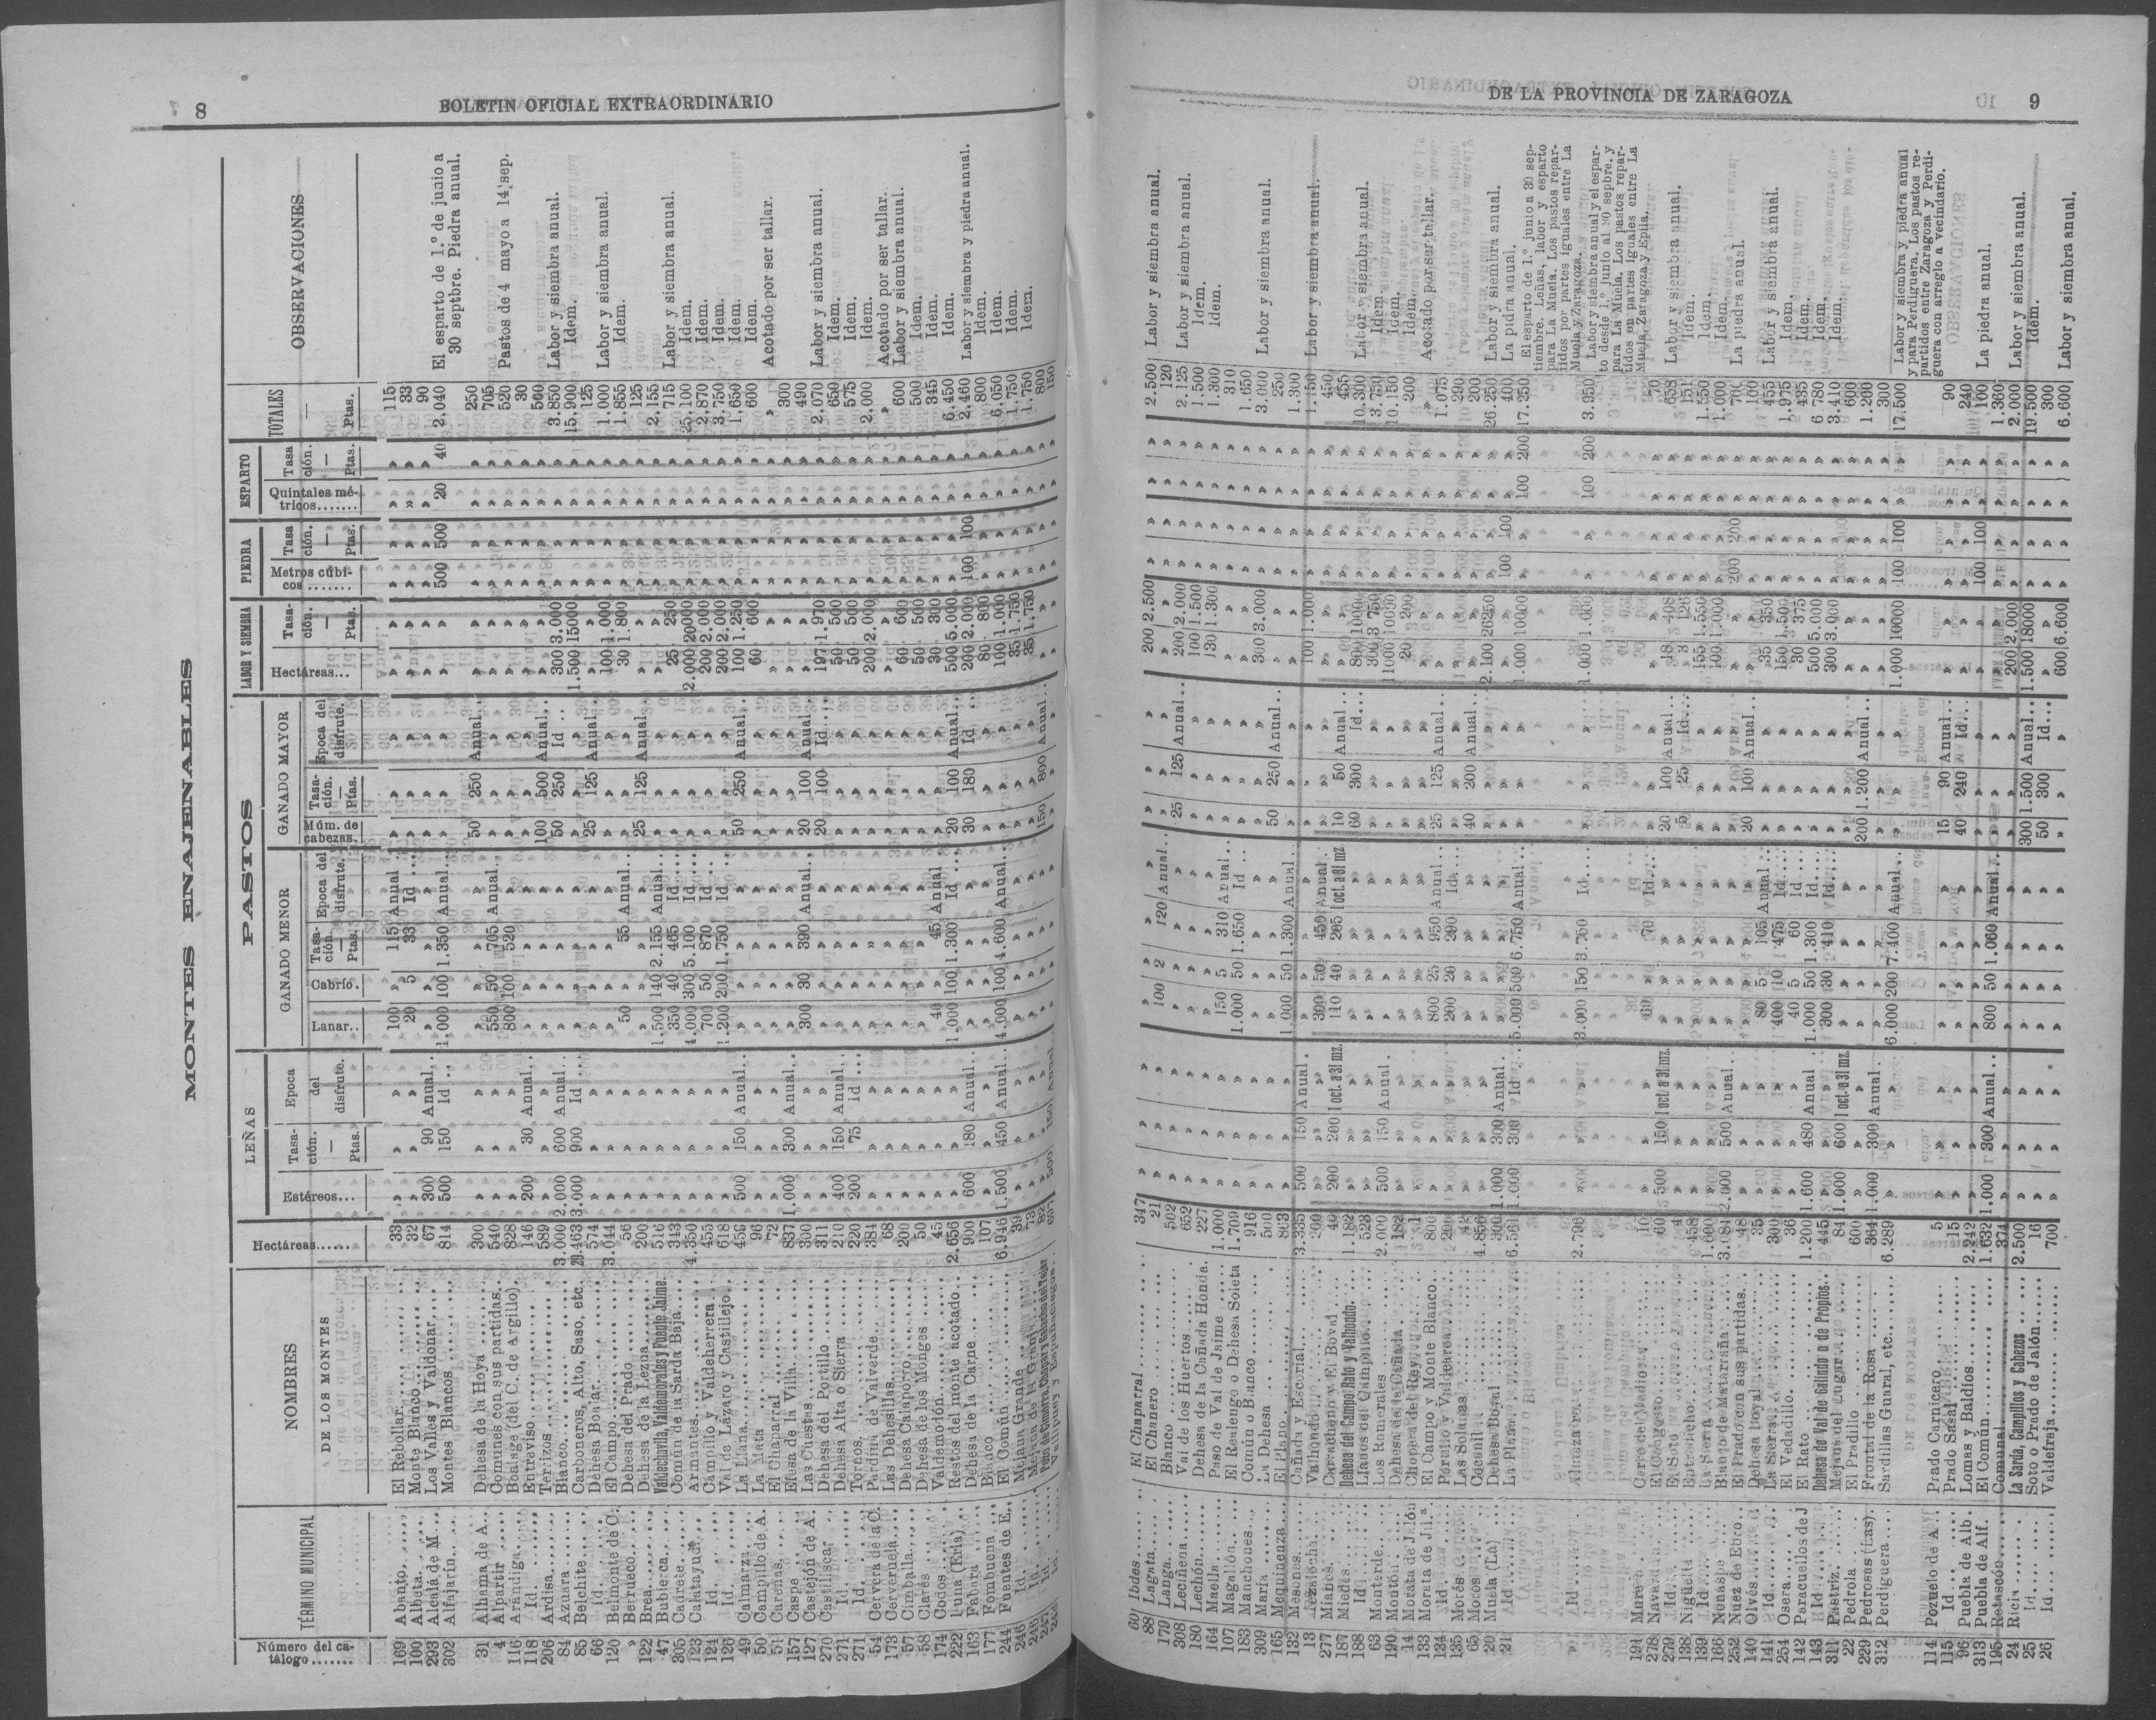 8
BOLETIN OFICIAL EXTRAORDINARIO
MONTES ENAJENABLES
Número del catálogo.......
TERMINO MUNICIPAL
NOMBRES
DE LOS MONTES
Hectáreas......
LEÑAS
Estéreos...
Tasación. — Ptas.
Epoca del disfrute.
PASTOS
GANADO MENOR
Lanar..
Cabrío.
Tasación. — Ptas.
Epoca del disfrute.
GANADO MAYOR
Núm. de cabezas.
Tasación. — Ptas.
Epoca del disfrute.
LABOR Y SIEMBRA
Hectáreas...
Tasación. — Ptas.
PIEDRA
Metros cúbicos........
Tasación. — Ptas.
ESPARTO
Quintales métricos.......
Tasación. — Ptas.
TOTALES — Ptas.
OBSERVACIONES
169 Abanto El Rebollar 33 » » » 100 » 115 Anual » » » » » » » » » 115
100 Albeta Monte Blanco 32 » » » 20 5 33 Id » » » » » » » » » 33
293 Alcalá de M Los Valles y Valdonar 67 300 90 Anual.. » » » » » » » » » » » » » 90
302 Alfajarín Montes Blancos 814 500 150 Id ... 1.000 100 1.350 Anual.. » » » » » 500 500 20 40 2.040 El esparto de 1.º de junio a 30 septbre. Piedra anual.
31 Alhama de A... Dehesa de la Hoya 300 » » » » » » » 50 250 Anual.. » » » » » » 250
4 Alpartir Comunes con sus partidas.. 540 » » » 550 50 705 Anual.. » » » » » » » » » 705
116 Arándiga Boalage (del C. de Argillo). 828 » » » 800 100 520 » » » » » » » » » » 520 Pastos de 4 mayo a 14 sep.
118 Id. Entraviso 146 200 30 Anual.. » » » » » » » » » » » » » 30
206 Ardisa Terrizos 589 » » » » » » » 100 500 Anual... » » » » » » 500
84 Azuara Blanco 3.000 2.000 600 Anual.. » » » » 50 250 Id .. 300 3.000 » » » » 3.850 Labor y siembra anual.
85 Belchite Carboneros, Alto, Saso, etc. 29.463 3.000 900 Id ... » » » » » » » 1.500 15000 » » » » 15.900 Idem.
66 id. Dehesa Boalar 574 » » » » » » » 25 125 Anual.. » » » » » » 125
120 Belmonte de C. El Campo 3.044 » » » » » » » » » » 100 1.000 » » » » 1.000 Labor y siembra anual.
» Berrueco Dehesa del Prado 56 » » » 50 » 55 Anual.. » » » 30 1.800 » » » » 1.855 Idem.
122 Brea Dehesa de la Lezna 200 » » » » » » » 25 125 Anual.. » » » » » » 125
47 Bubierca Valdechavilla, Valdemorales y Puente Jaime. 516 » » » 1.500 140 2.155 Anual.. » » » » » » » » » 2.155
305 Cadrete Común de la Sarda Baja 343 » » » 350 40 465 Id » » » 25 250 » » » » 715 Labor y siembra anual.
123 Calatayud Armantes 4.350 » » » 4.000 300 5.100 Id » » » 2.000 20000 » » » » 25.100 Idem.
124 Id. Campillo y Valdeherrera 455 » » » 700 50 870 Id » » » 200 2.000 » » » » 2.870 Idem.
126 Id. Val de Lázaro y Castillejo 618 » » » 1.200 200 1.750 Id » » » 200 2.000 » » » » 3.750 Idem.
49 Calmarza La Llana 459 500 150 Anual.. » » » » 50 250 Anual.. 100 1.250 » » » » 1.650 Idem.
50 Campillo de A. La Mata 96 » » » » » » » » » » 60 600 » » » » 600 Idem.
51 Careñas El Chaparral 72 » » » » » » » » » » » » » » » » » Acotado por ser tallar.
157 Caspe Efesa de la Villa 837 1.000 300 Anual.. » » » » » » » » » » » » » 300
127 Castejón de A. Las Cuestas 300 » » » 300 30 390 Anual.. 20 100 Anual.. » » » » » » 490
270 Castiliscar Dehesa del Portillo 311 » » » » » » » 20 100 Id.... 197 1.970 » » » » 2.070 Labor y siembra anual.
271 Id. Dehesa Alta o Sierra 210 400 150 Anual.. » » » » » » » 50 500 » » » » 650 Idem.
271 Id. Tornos 220 200 75 Id ... » » » » » » » 50 500 » » » » 575 Idem.
54 Cervera de la C. Pardina de Valverde 384 » » » » » » » » » » 200 2.000 » » » » 2.000 Idem.
173 Cerveruela Las Dehesillas 68 » » » » » » » » » » » » » » » » » Acotado por ser tallar.
57 Cimballa Dehesa Calaporro 200 » » » » » » » » » » 60 600 » » » » 600 Labor y siembra anual.
58 Clarés Dehesa de los Monges 50 » » » » » » » » » » 50 500 » » » » 500 Idem.
174 Codos Valdemodón 45 » » » 40 » 45 Anual » » » 30 300 » » » » 345 Idem.
222 Luna (Erla) Restos del monte acotado 2.656 » » » 1.000 100 1.300 Id ... 20 100 Anual.. 500 5.000 » » » » 6.450 Idem.
163 Fabara Dehesa de la Carne 900 600 180 Anual.. » » » » 30 180 Id... 200 2.000 100 100 » » 2.460 Labor y siembra y piedra anual.
177 Fombuena Blanco 107 » » » » » » » » » » 80 800 » » » » 800 Idem.
244 Fuentes de E. El Común 6.946 1.500 450 Anual.. 4.000 100 4.600 Anual.. » » » 100 1.000 » » » » 6.050 Idem.
246 Id. Mejana Grande 39 » » » » » » » » » » 35 1.750 » » » » 1.750 Idem.
Id. 73 » » » » » » » » » » 35 1.750 » » » » 1.750 Idem.
Id. 82 » » » » » » » 150 800 Anual... » » » » » » 800
DE LA PROVINCIA DE ZARAGOZA
9
60 Ibdes El Chaparral 347 » » » » » » » » » » 200 2.500 » » » » 2.500 Labor y siembra anual.
88 Lagata El Chanero 21 » » » 100 2 120 Anual.. » » » » » » » » » 120
179 Langa Blanco 502 » » » » » » » 25 125 Anual... 200 2.000 » » » » 2.125 Labor y siembra anual.
308 Leciñena Val de los Huertos 652 » » » » » » » » » » 100 1.500 » » » » 1.500 Idem.
180 Lechón Dehesa de la Cañada Honda. 227 » » » » » » » » » » 130 1.300 » » » » 1.300 Idem.
164 Maella Paso de Val de Jaime 1.000 » » » 150 5 310 Anual... » » » » » » » » » 310
107 Magallón El Realengo o Dehesa Soneta 1.709 » » » 1.000 50 1.650 Id .. » » » » » » » » » 1.650
183 Manchones Común o Blanco 916 » » » » » » » » » » 300 3.000 » » » » 3.000 Labor y siembra anual.
309 María La Dehesa 500 » » » » » » » 50 250 Anual... » » » » » » 250
165 Mequinenza El Plano 863 » » » 1.000 50 1.300 Anual... » » » » » » » » » 1.300
132 Mesones Cañada y Escorial 3.335 500 150 Anual.. » » » » » » » 100 1.000 » » » » 1.150 Labor y siembra anual.
13 Valhondo 300 50 450 Anual.. » » » » » » » » » 450
277 Mianos 40 200 200 1 oct. a 31 mz. 110 40 205 1 oct. a 31 mz 10 50 Anual... » » » » » » 455
187 Miedes Dehesa del Campo Rato y Valhondo. 1.182 » » » » » » » 60 300 Id... 800 10000 » » » » 10.300 Labor y siembra anual.
188 Id Llanos del Campillo 528 » » » » » » » » » » 300 3.750 » » » » 3.750 Idem.
63 Monterde Los Romerales 2.000 500 150 Anual.. » » » » » » » 1000 10000 » » » » 10.150 Idem.
190 Montón Dehesa de la Cañada 182 » » » » » » » » » » 20 200 » » » » 200 Idem.
14 Morata de Jalón Chopera del Rey » Acotado por ser tallar.
133 Morata de Jil.ª El Campo y Monte Blanco 800 » » » 800 25 950 Anual... 25 125 Anual... » » » » » » 1.075
134 Id. Pardilo y Valdearea » » » 200 20 290 Id.... » » » » » » » » » 290
135 Morés Las Solanas » » » » » » » 40 200 Anual... » » » » » » 200
65 Moros 4.856 » » » » » » » » » » 2.100 26250 » » » » 26.250 Labor y siembra anual.
20 Muela (La) Dehesa Boyal 300 1.000 300 Anual.. » » » » » » » » » 100 100 » » 400 La pidra anual.
21 Id La Plana 6.561 1.000 300 Id ... 5.000 500 6.750 Anual.. » » » 1.000 10000 » » 100 200 17.250 El esparto de 1.º junio a 30 septiembre. Leñas, labor y esparto para La Muela. Los pastos repartidos por partes iguales entre La Muela y Zaragoza.
Id 2.796 » » » 3.000 150 3.750 Id.... » » » 1.000 1.000 » » 100 200 3.950 Labor y siembra anual y el esparto desde 1.º junio al 30 sepbre. y para La Muela. Los pastos repartidos en partes iguales entre La Muela, Zaragoza y Epila.
191 Murero 10 » » » 60 » 70 Id... » » » » » » » » » 70
278 Navar 60 500 150 1 oct. a 31 mz. » » » » 20 100 Anual... 18 408 » » » » 658 Labor y siembra anual.
279 Id. El Soto 4 » » » » » » » 5 25 Id.... 3 126 » » » » 151 Idem.
138 Nigüella 458 » » » » » » » » » » 155 1.550 » » » » 1.550 Idem.
139 Id. La Sierra 1.000 » » » » » » » » » » 100 1.000 » » » » 1.000 Idem.
166 Nonaspe Blanco de Matarraña 3.084 2.000 500 Anual.. » » » » » » » » » 200 200 » » 700 La piedra anual.
252 Nuez de Ebro El Prado con sus partidas 48 » » » » » » » 20 100 Anual... » » » » » » 100
140 Olvés Dehesa boyal 35 » » » 80 5 105 Anual... » » » 35 350 » » » » 455 Labor y siembra anual.
141 Id. La Sierra 300 » » » 400 10 475 Id.... » » » 150 1.500 » » » » 1.975 Idem.
254 Osera El Vedadillo 36 » » » 40 5 60 Id.... » » » 30 375 » » » » 435 Idem.
142 Paracuellos de J El Rato 1.200 1.600 480 Anual.. 1.000 50 1.300 Id.... » » » 500 5.000 » » » » 6.780 Idem.
143 Id Dehesa de Val de Galindo o de Propios. 445 » » » 300 30 410 Id.... » » » 300 3.000 » » » » 3.410 Idem.
311 Pastriz Mejana del Lugar 84 1.000 600 1 oct. a 31 mz. » » » » » » » » » » » » » 600
22 Pedrola El Pradillo 600 » » » » » » » 200 1.200 Anual... » » » » » » 1.200
229 Pedrosas (Las) Frontal de la Rosa 364 1.000 300 Anual.. » » » » » » » » » » » » » 300
312 Perdiguera Sardillas Guaral, etc 6.289 » » » 6.000 200 7.400 Anual... » » » 1.000 10000 100 100 » » 17.500 Labor y siembra y piedra anual y para Perdiguera. Los pastos repartidos entre Zaragoza y Perdiguera con arreglo a vecindario.
114 Pozuelo de A Prado Carnicero 5 » » » » » » » 15 90 Anual... » » » » » » 90
115 Id Prado Sasal 15 » » » » » » » 40 240 Id... » » » » » » 240
96 Puebla de Alb. Lomas y Baldíos 2.242 » » » » » » » » » » » » 100 100 » » 100 La piedra anual.
313 Puebla de Alf. El Común 1.632 1.000 300 Anual.. 800 50 1.060 Anual... » » » » » » » » » 1.360
195 Retascón Comunal 374 » » » » » » » » » » 200 2.000 » » » » 2.000 Labor y siembra anual.
24 Ricla La Sarda, Campillos y Cabezos 2.500 » » » » » » » 300 1.500 Anual... 1.500 18000 » » » » 19.500 Idem.
25 Id Soto o Prado de Jalón 16 » » » » » » » 50 300 Id... » » » » » » 300
26 Id Valdefraja 700 » » » » » » » » » » 600 6.600 » » » » 6.600 Labor y siembra anual.